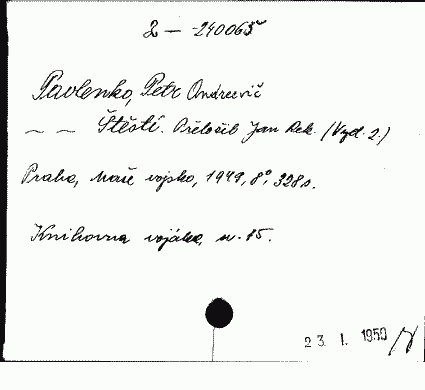 2 — 240065
Pavlenko, Petr Andreevič
— — Štěstí. Přeložil Jan Rek. (Vyd. 2.)
Praha, Naše vojsko, 1949, 8°, 328 s.
Knihovna vojáka, sv. 15.
23. I. 1950